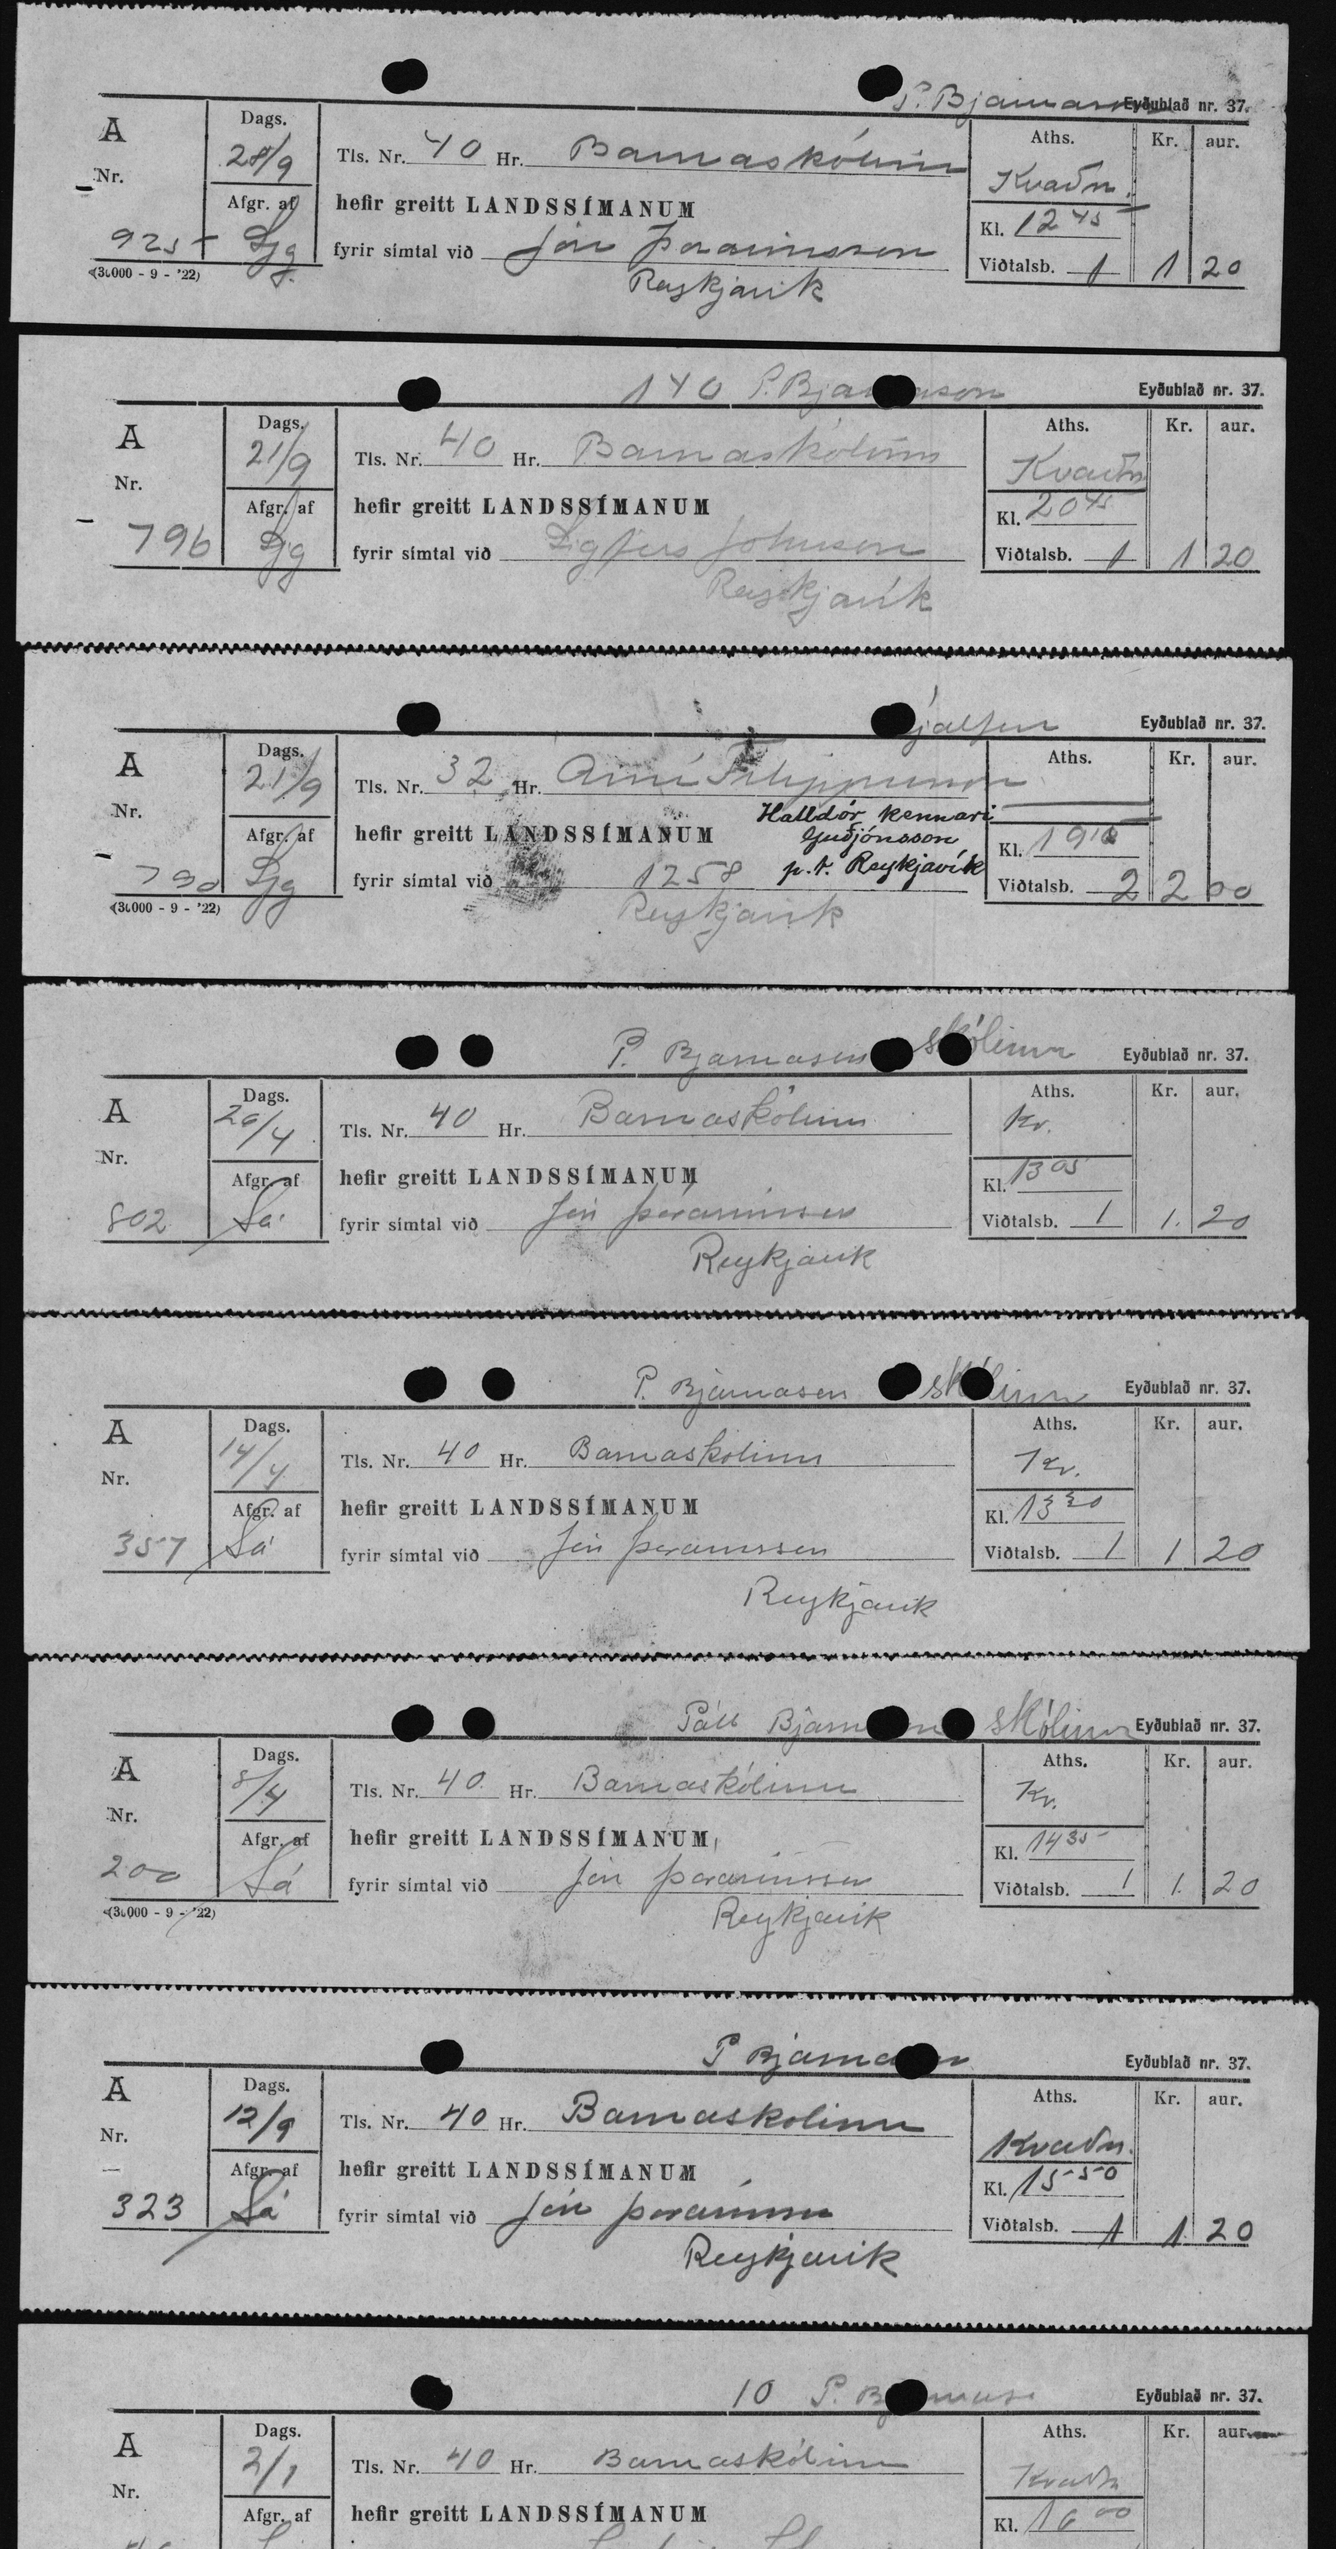 P. Bjarnason Eyðublað nr. 37.
A Dags. Aths. Kr. aur.
28/9 Tls. Nr. 40 Hr. Barnaskólinn Kvaðn.
Nr. Afgr. af hefir greitt LANDSSÍMANUM Kl. 12 45
925 Sjg fyrir símtal við Jón Þorarinsson Viðtalsb. 1 1 20
(30000 - 9 - '22) Reykjavik
140 P. Bjarnason Eyðublað nr. 37.
A Dags. Aths. Kr. aur.
21/9 Tls. Nr. 40 Hr. Barnaskólinn Kvaðn
Nr. Afgr. af hefir greitt LANDSSÍMANUM Kl. 20 45
796 Sjg fyrir símtal við Sigfús Johnsen Viðtalsb. 1 1 20
Reykjavík
sjálfur Eyðublað nr. 37.
A Dags. Aths. Kr. aur.
21/9 Tls. Nr. 32 Hr. Arni Filippusson
Halldór kennari
Nr. Afgr. af hefir greitt LANDSSÍMANUM Guðjónsson Kl. 19 10
p.t. Reykjavík
790 Sjg fyrir símtal við 1258 Viðtalsb. 2 2 00
(30000 - 9 - '22) Reykjavik
P. Bjarnasen skólinn Eyðublað nr. 37.
A Dags. Aths. Kr. aur.
26/4 Tls. Nr. 40 Hr. Barnaskólinn Kv.
Nr. Afgr. af hefir greitt LANDSSÍMANUM Kl. 13 05
802 Sá fyrir símtal við Jón Þórarinsson Viðtalsb. 1 1. 20
Reykjavik
P. Bjarnasen skólinn Eyðublað nr. 37.
A Dags. Aths. Kr. aur.
14/4 Tls. Nr. 40 Hr. Barnaskólinn Kv.
Nr. Afgr. af hefir greitt LANDSSÍMANUM Kl. 13 20
357 Sá fyrir símtal við Jón Þorarinssen Viðtalsb. 1 1 20
Reykjavik
Páll Bjarnason skólinn Eyðublað nr. 37.
A Dags. Aths. Kr. aur.
8/4 Tls. Nr. 40 Hr. Barnaskólinn Kv.
Nr. Afgr. af hefir greitt LANDSSÍMANUM Kl. 14 35
200 Sá fyrir símtal við Jón Þorarinsson Viðtalsb. 1 1. 20
(30000 - 9 - '22) Reykjavik
P Bjarnason Eyðublað nr. 37.
A Dags. Aths. Kr. aur.
12/9 Tls. Nr. 40 Hr. Barnaskolinn Kvaðn.
Nr. Afgr. af hefir greitt LANDSSÍMANUM Kl. 15 50
323 Sá fyrir símtal við Jón Þorarinsson Viðtalsb. 1 1 20
Reykjavik
10 P. Bjarnason Eyðublað nr. 37.
A Dags. Aths. Kr. aur.
2/1 Tls. Nr. 40 Hr. Barnaskólinn Kvaðn
Nr. Afgr. af hefir greitt LANDSSÍMANUM Kl. 16 00